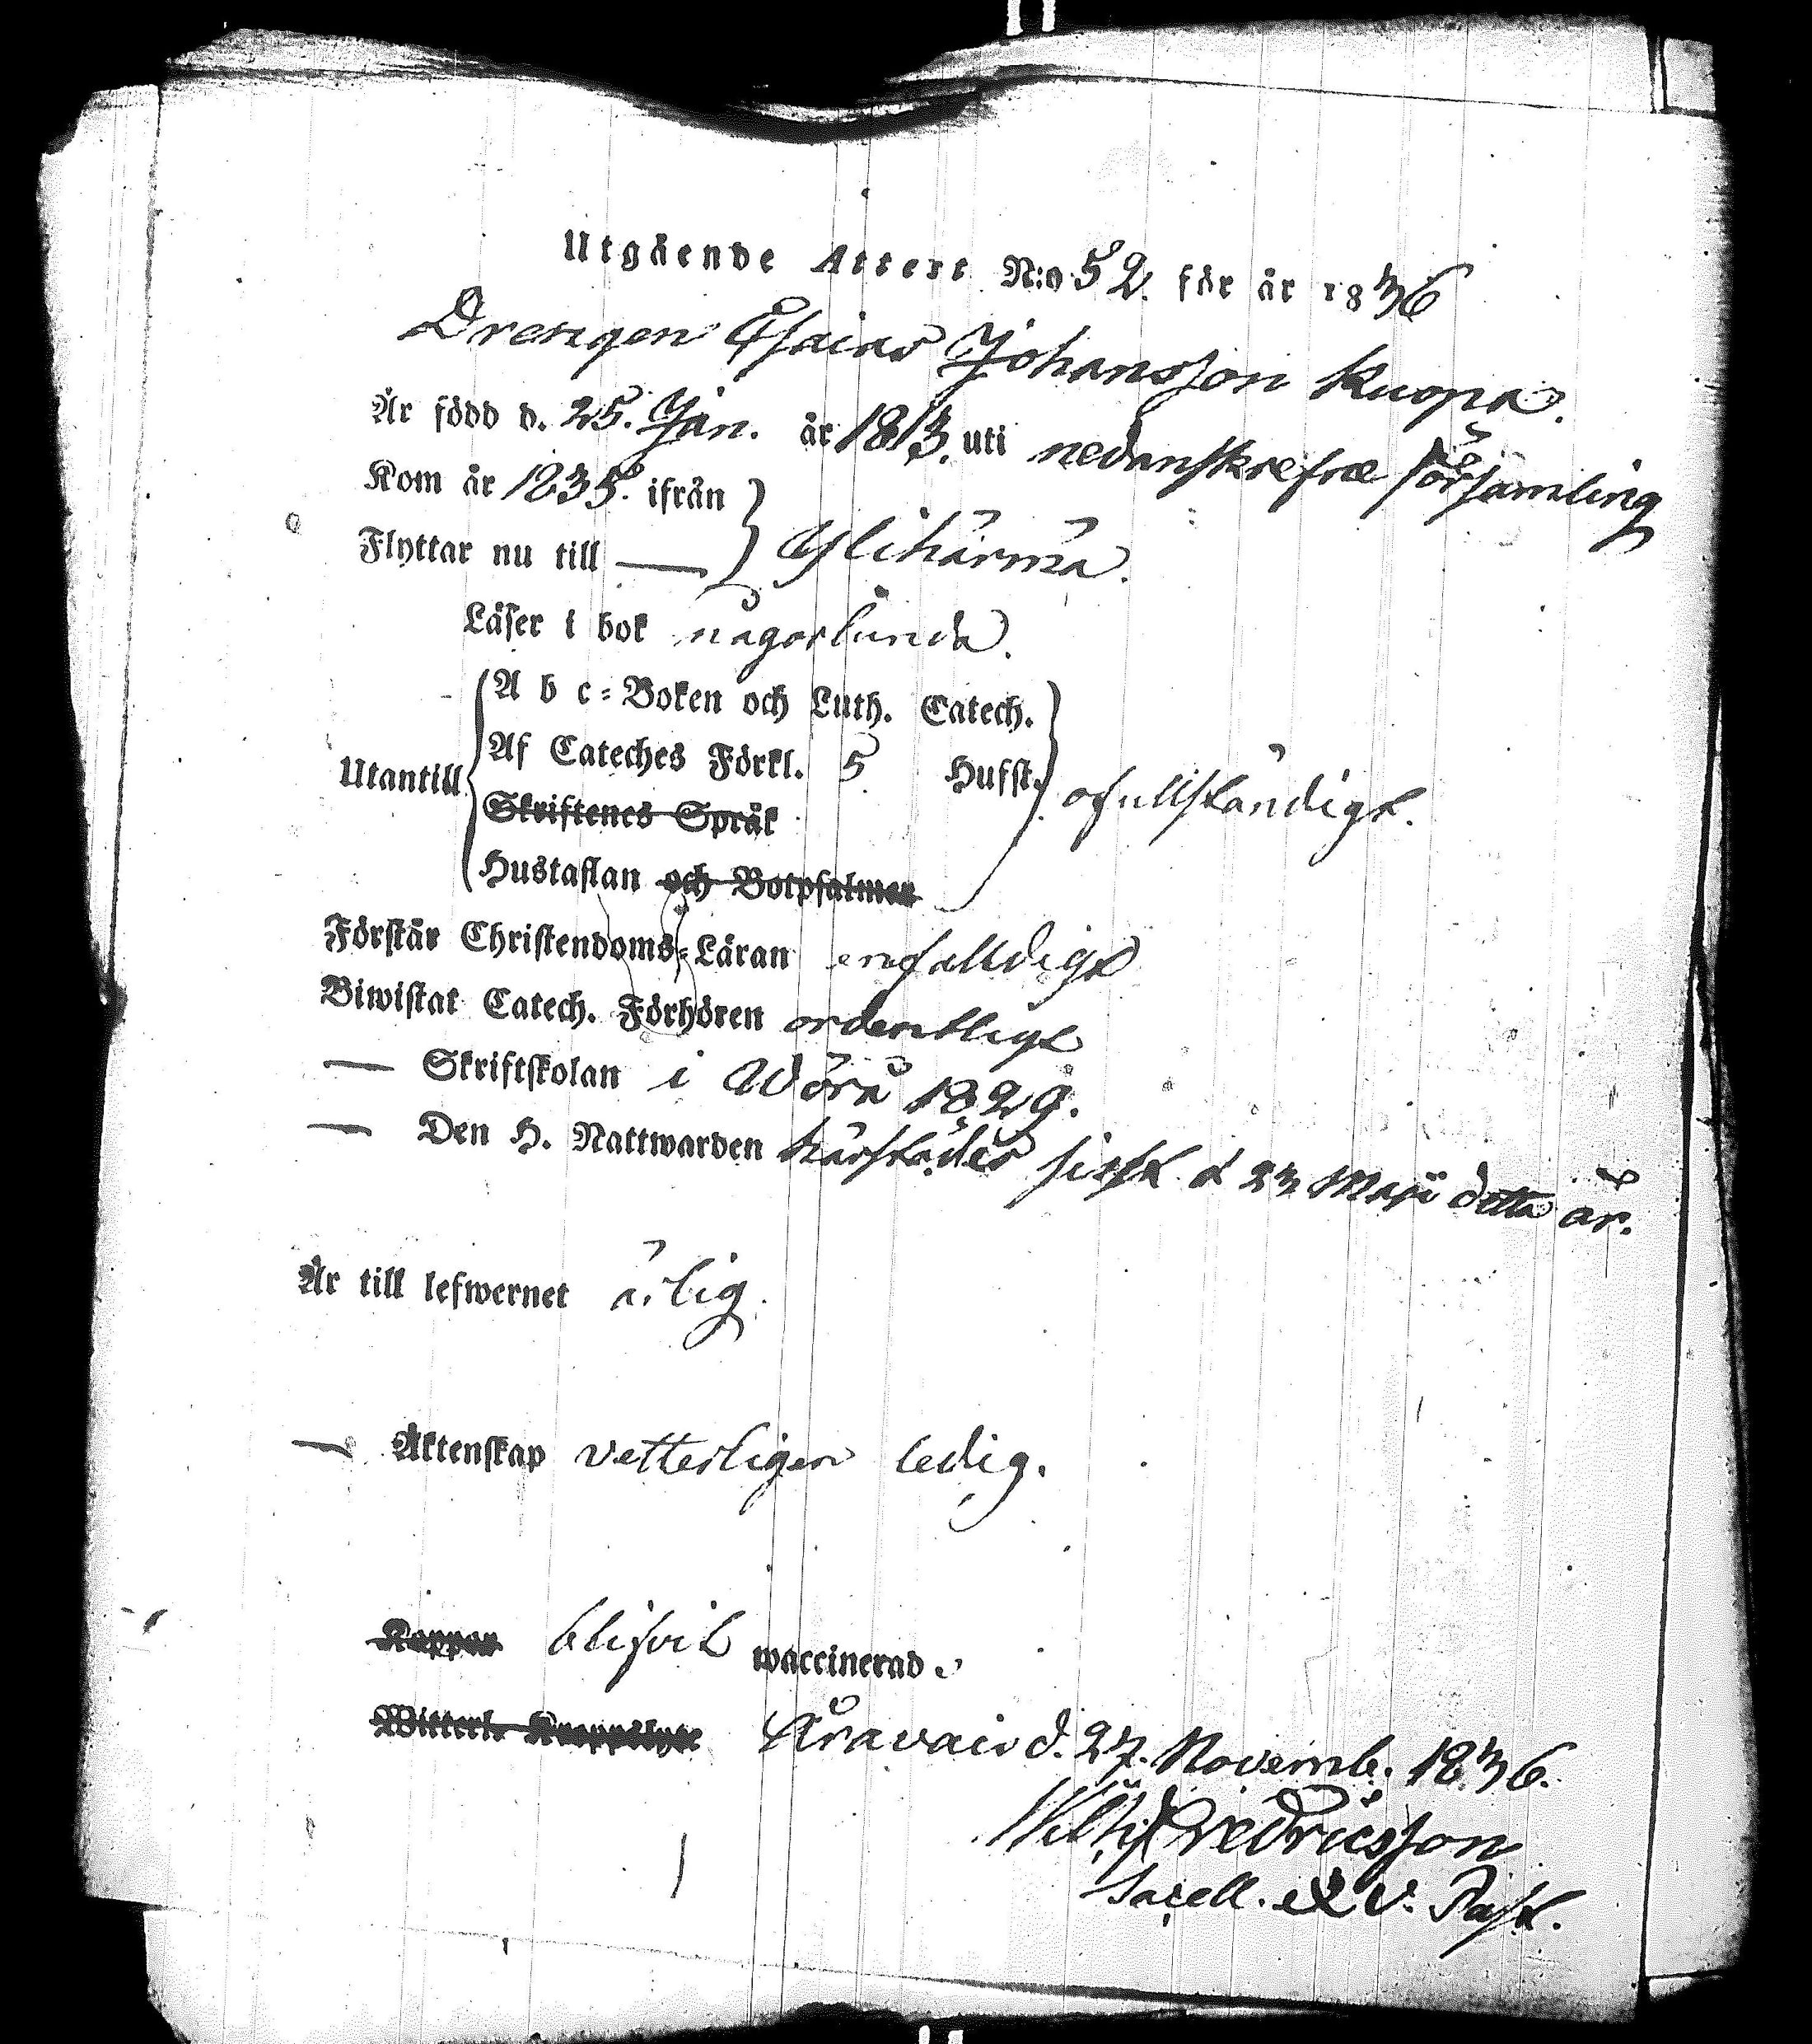 Utgående Attest N:o 52. för år 1836
Drengen Esaias Johansson Kuopa.
Är född d. 25. Jan. år 1813. uti nedanskrefne församling
Kom år 1835. ifrån
Flyttar nu till — } Ylihärmä.
Läser i bok någorlunda.
A b c-Boken och Luth. Catech.
Af Cateches Förkl. 5 Hufst.
Utantill ofullständigt.
Skriftenes Språk
Hustaflan och Botpsalmen
Förstår Christendoms-Läran enfalldigt
Biwistat Catech. Förhören ordentligt
— Skriftskolan i Wörå 1829.
— Den H. Nattwarden härstädes sist d 23 Maji detta år.
Är till lefwernet ärlig.
— Äktenskap vetterligen ledig.
Koppor blifvit waccinerad.
Witterl. Kroppslyte Åravais d. 27. Novemb. 1836.
Wilh. Fredricsson
Sacell. & V. Past.